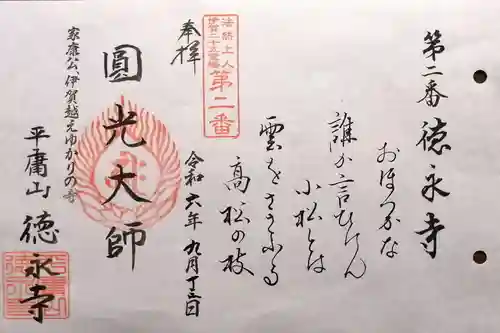 第二番 徳永寺
おぼつかな
誰か言ひけん
小松とは
雲をさゝふる
高松の枝
法然上人
伊賀二十五霊場
第二番
奉拝
圓光大師
令和六年 九月 十三日
家康公「伊賀越えゆかりの寺
平庸山 徳永寺